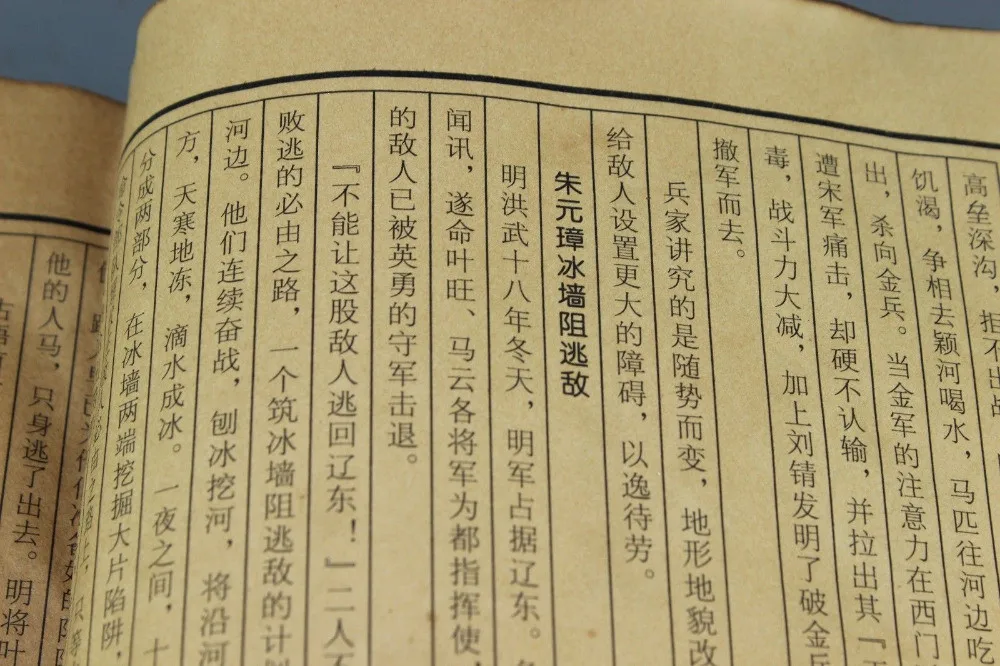 高垒深沟，拒不出战
饥渴，争相去颍河喝水，马匹往河边吃
出，杀向金兵。当金军的注意力在西门
遭宋军痛击，却硬不认输，并拉出其『
毒，战斗力大减，加上刘锜发明了破金兵
撤军而去。
兵家讲究的是随势而变，地形地貌改
给敌人设置更大的障碍，以逸待劳。
朱元璋冰墙阻逃敌
明洪武十八年冬天，明军占据辽东。
闻讯，遂命叶旺、马云各将军为都指挥使，
的敌人已被英勇的守军击退。
『不能让这股敌人逃回辽东！』二人不
败逃的必由之路，一个筑冰墙阻逃敌的计划
河边。他们连续奋战，刨冰挖河，将沿河
方，天寒地冻，滴水成冰。一夜之间，十
分成两部分，在冰墙两端挖掘大片陷阱，
他的人马，只身逃了出去。明将叶